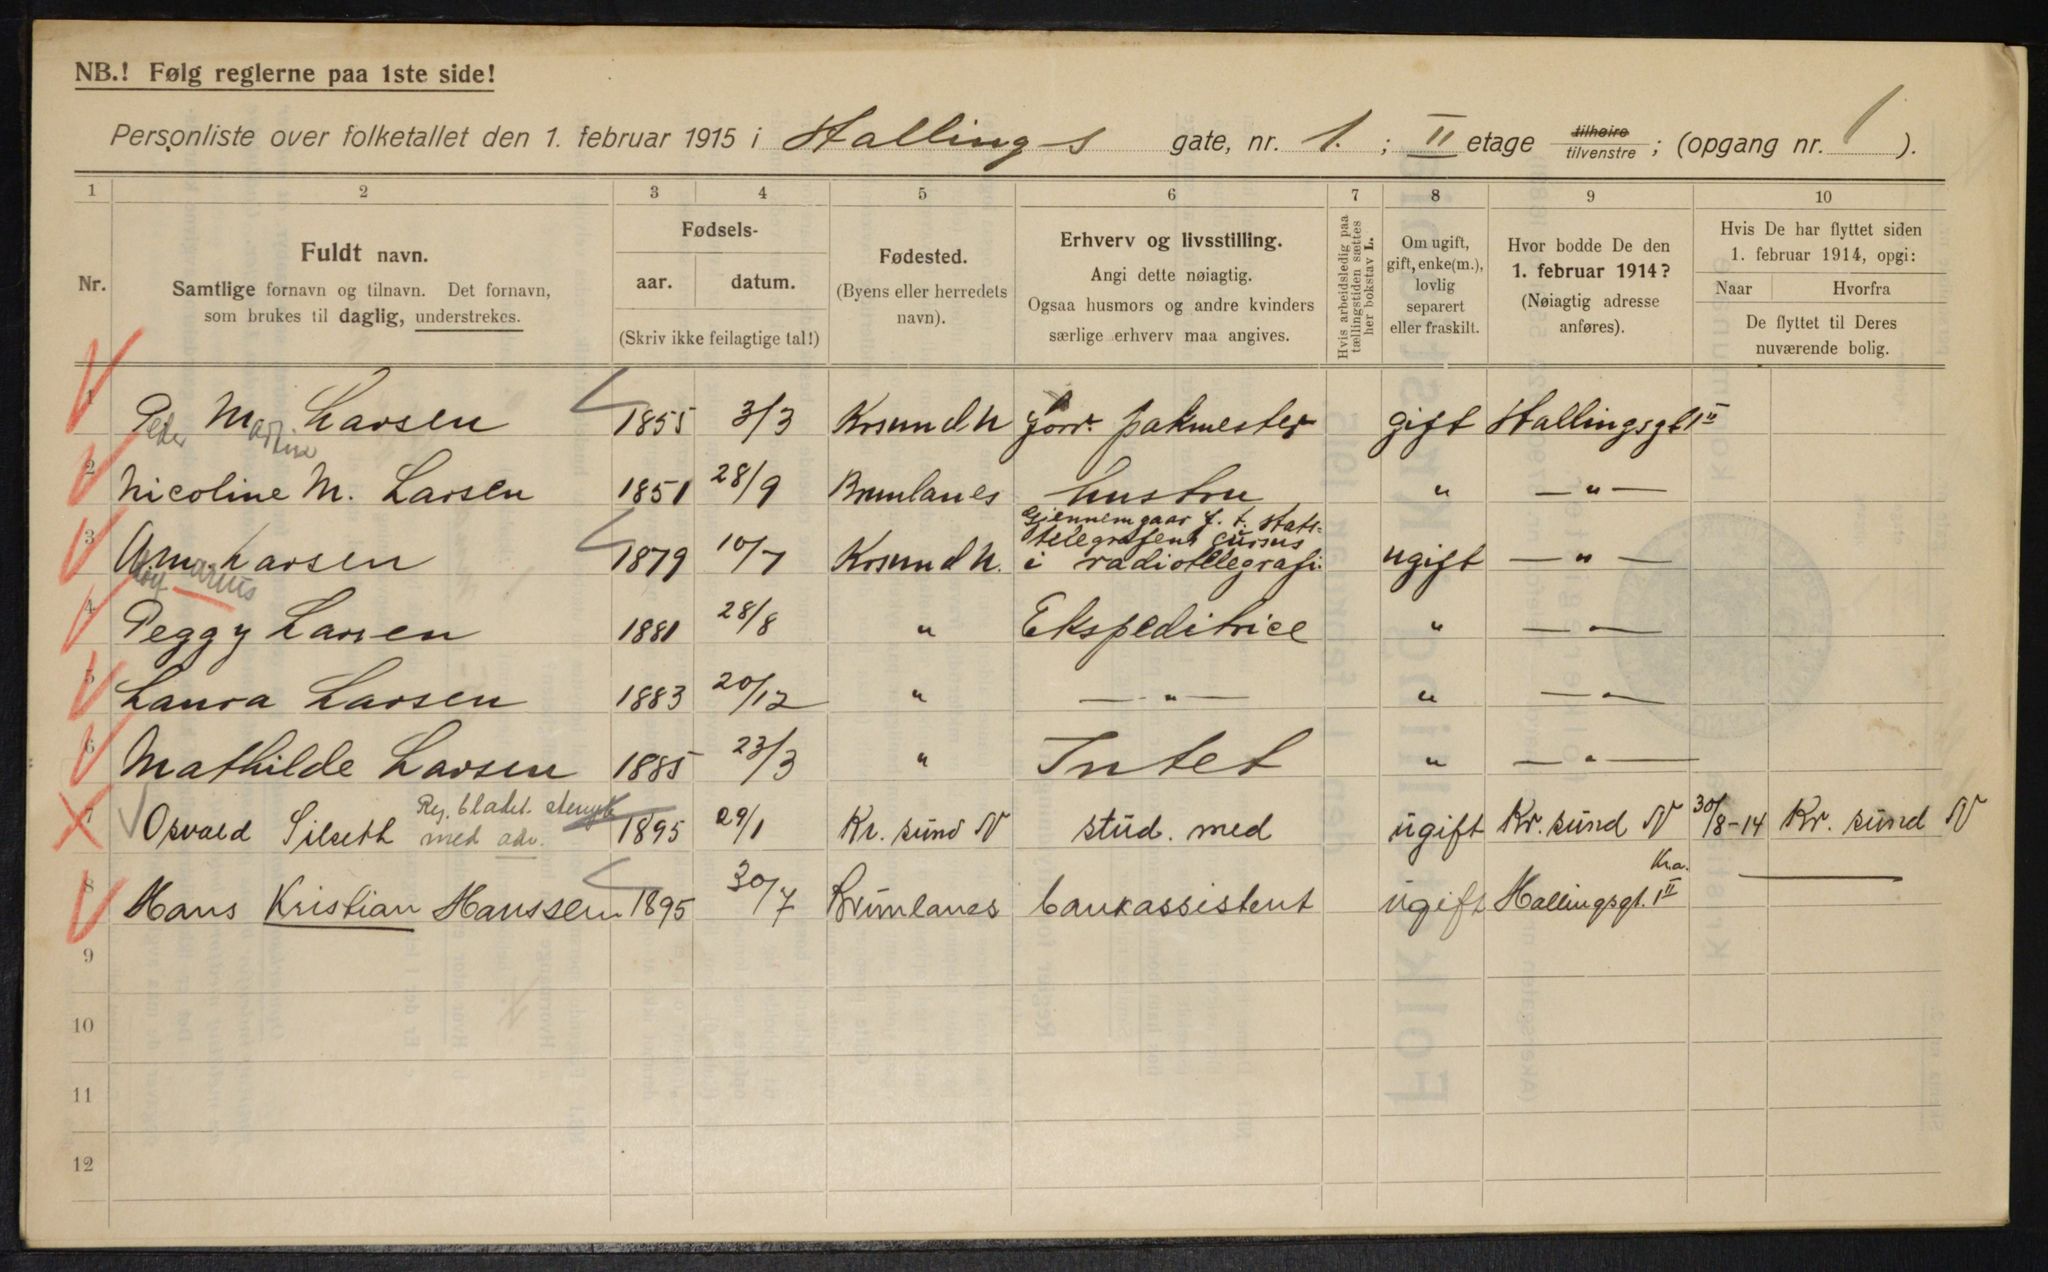 NB.! Følg reglerne paa 1ste side!
Personliste over folketallet den 1. februar 1915 i Hallings gate, nr. 1. ; II etage tilhøire tilvenstre ; (opgang nr. 1 ).
1 2 3 4 5 6 7 8 9 10
Nr.
Fuldt navn.
Samtlige fornavn og tilnavn. Det fornavn,
som brukes til daglig, understrekes.
Fødsels-
aar. datum.
(Skriv ikke feilagtige tal!)
Fødested.
(Byens eller herredets
navn).
Erhverv og livsstilling.
Angi dette nøiagtig.
Ogsaa husmors og andre kvinders
særlige erhverv maa angives.
Hvis arbeidsledig paa
tællingstiden sættes
her bokstav L.
Om ugift,
gift, enke(m.),
lovlig
separert
eller fraskilt.
Hvor bodde De den
1. februar 1914?
(Nøiagtig adresse
anføres).
Hvis De har flyttet siden
1. februar 1914, opgi:
Naar Hvorfra
De flyttet til Deres
nuværende bolig.
1 P. M. Larsen 1855 3/3 Krsund N forr. pakmester gift Hallingsgt 1 II
Peder Martin
2 Nicoline M. Larsen 1851 28/9 Brunlanes hustru " — " —
Gjennemgaar f. t. stats-
telegrafens cursus
3 A. M. Larsen 1879 10/7 Krsund N. i radiotelegrafi. ugift — " —
Marius
4 Peggy Larsen 1881 28/8 " Ekspeditrice " — " —
5 Laura Larsen 1883 20/12 " — " — " — " —
6 Mathilde Larsen 1885 23/3 " Intet " — " —
Reg. bladet
7 Osvald Silseth med adr. 1895 29/1 Kr. sund N stud. med ugift Kr. sund N 30/8-14 Kr. sund N
Kr.a.
8 Hans Kristian Hanssen 1895 30/7 Brunlanes bankassistent ugift Hallingsgt. 1 II —
9
10
11
12